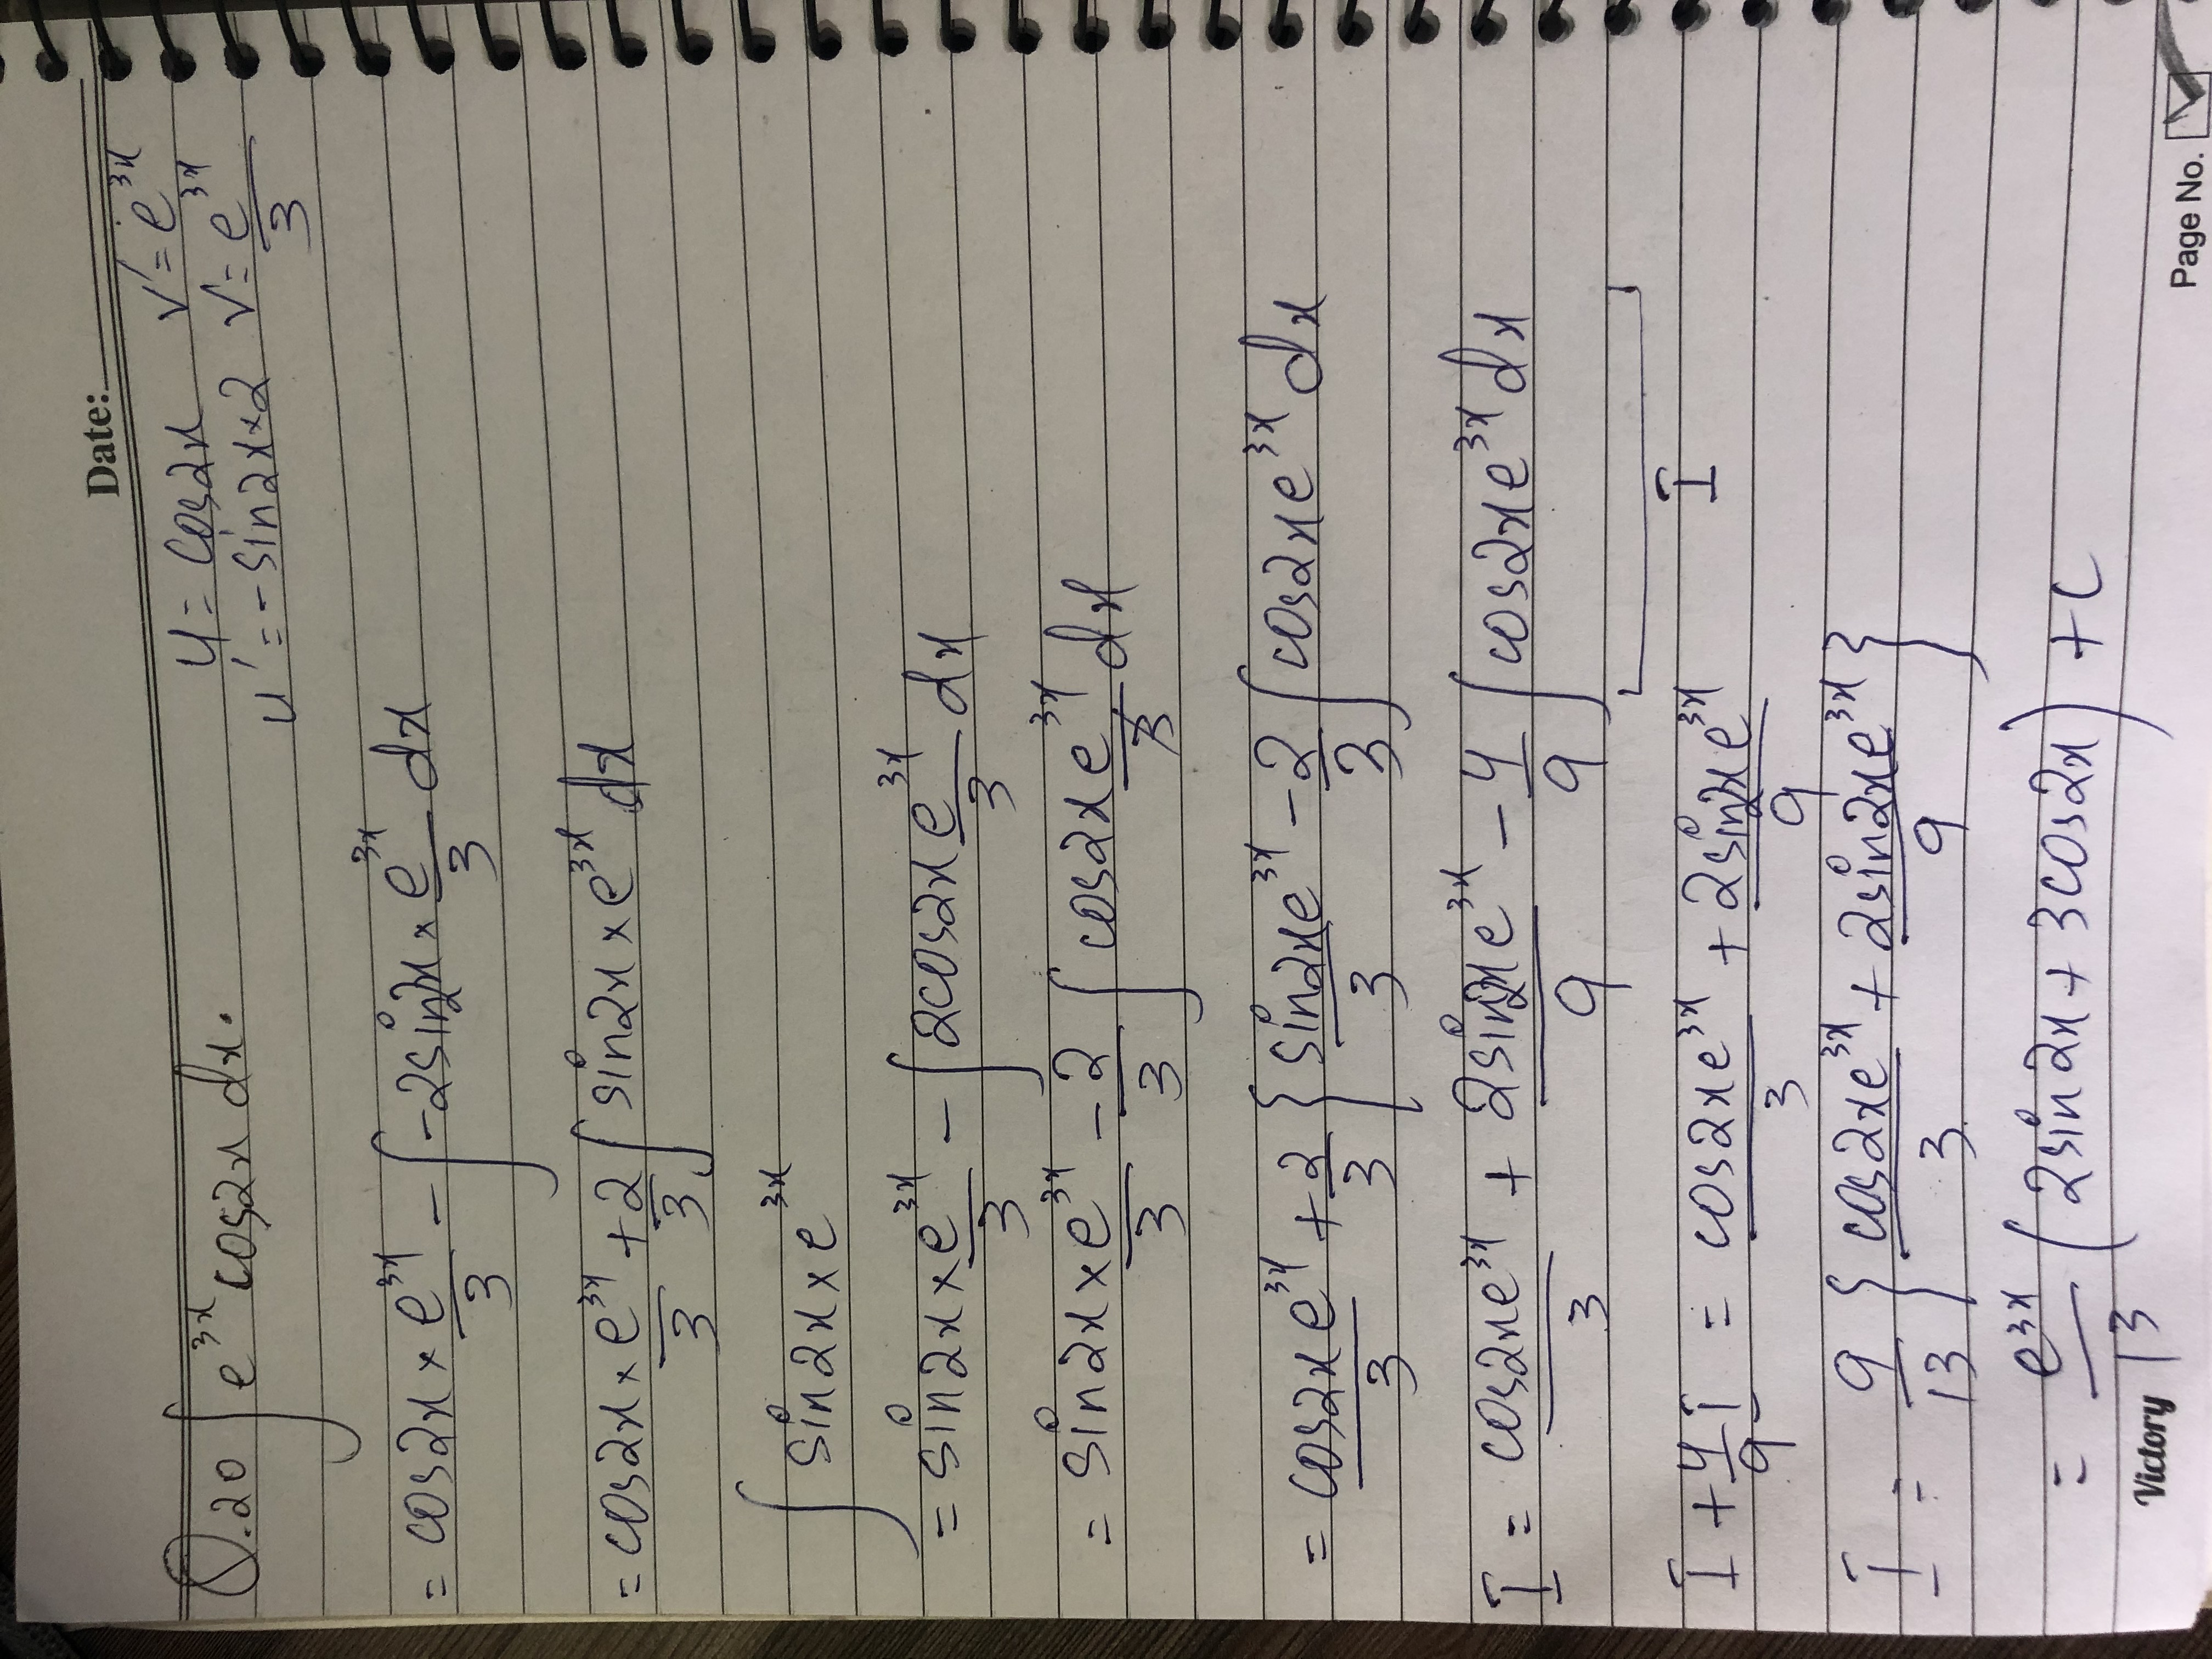 Date:
Q.20 ∫ e^{3x} cos2x dx.
u = cos2x v' = e^{3x}
u' = -sin2x×2 v = e^{3x}/3
= cos2x × e^{3x}/3 - ∫ -2sin2x × e^{3x}/3 dx
= cos2x × e^{3x}/3 + 2/3 ∫ sin2x × e^{3x} dx
∫ sin2x × e^{3x}
= sin2x × e^{3x}/3 - ∫ 2cos2x e^{3x}/3 dx
= sin2x × e^{3x}/3 - 2/3 ∫ cos2x e^{3x} dx
= cos2x e^{3x}/3 + 2/3 { sin2x e^{3x}/3 - 2/3 ∫ cos2x e^{3x} dx
I = cos2x e^{3x}/3 + 2sin2x e^{3x}/9 - 4/9 ∫ cos2x e^{3x} dx
I
I + 4/9 I = cos2x e^{3x}/3 + 2sin2x e^{3x}/9
I = 9/13 { cos2x e^{3x}/3 + 2sin2x e^{3x}/9 }
= e^{3x}/13 ( 2sin2x + 3cos2x ) + c
Victory
Page No.